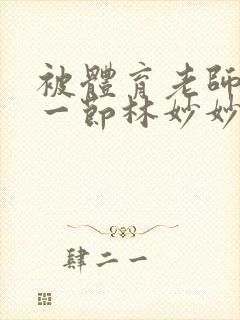 被體育老師
一節林妙妙
肆二一